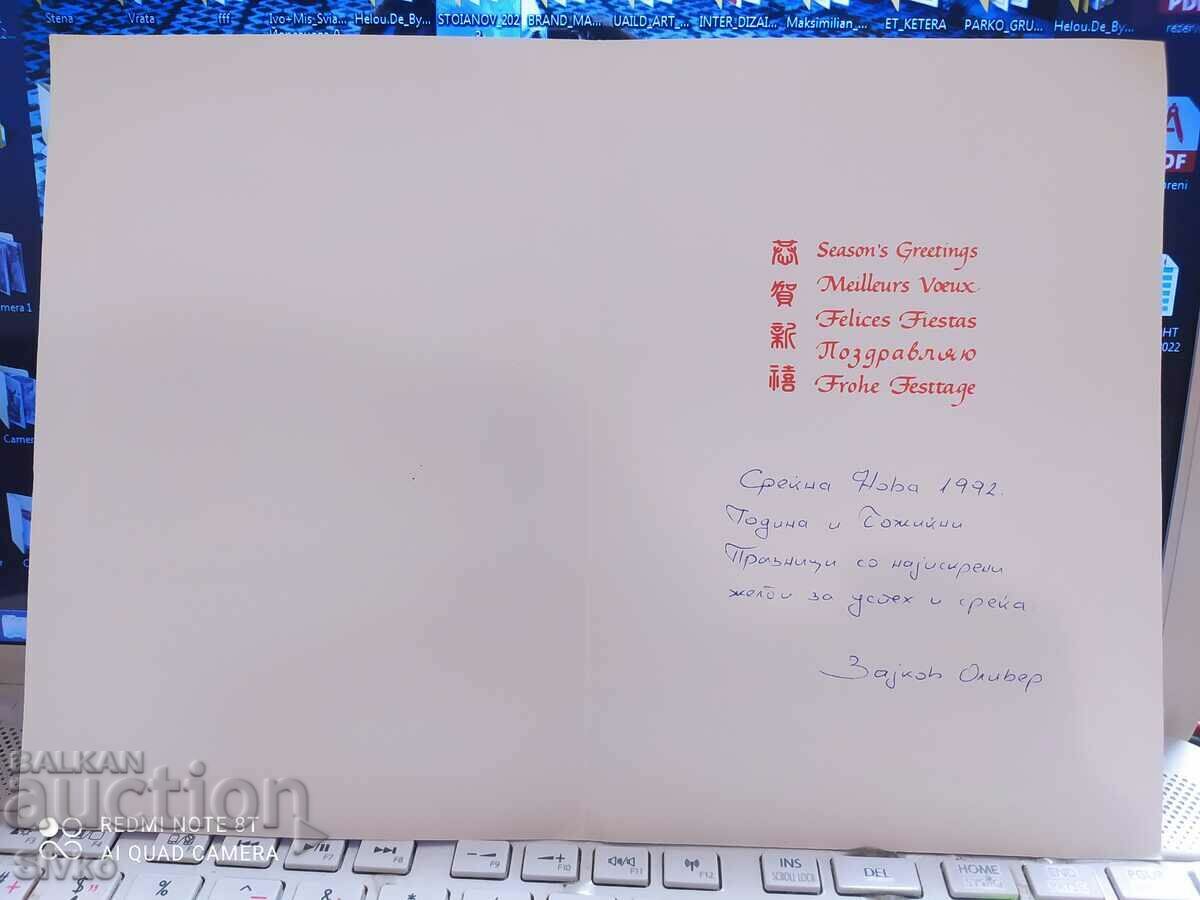 Stena
Vrata
fff
Ivo+Mis_Svia...
Helou.De_By...
STOIANOV_202
BRAND_MA...
UAILD_ART_...
INTER_DIZAI...
Maksimilian_...
ET_KETERA
PARKO_GRU...
Helou.De_By...
恭賀新禧
Season's Greetings
Meilleurs Vœux
Felices Fiestas
Поздравляю
Frohe Festtage
Среќна Нова 1992.
Година и Божиќни
Празници со најискрени
желби за успех и среќа
Зајков Оливер
BALKAN
auction
sivko
REDMI NOTE 8T
AI QUAD CAMERA
F7
F8
F9
F10
F11
F12
INS
DEL
HOME
END
PGUP